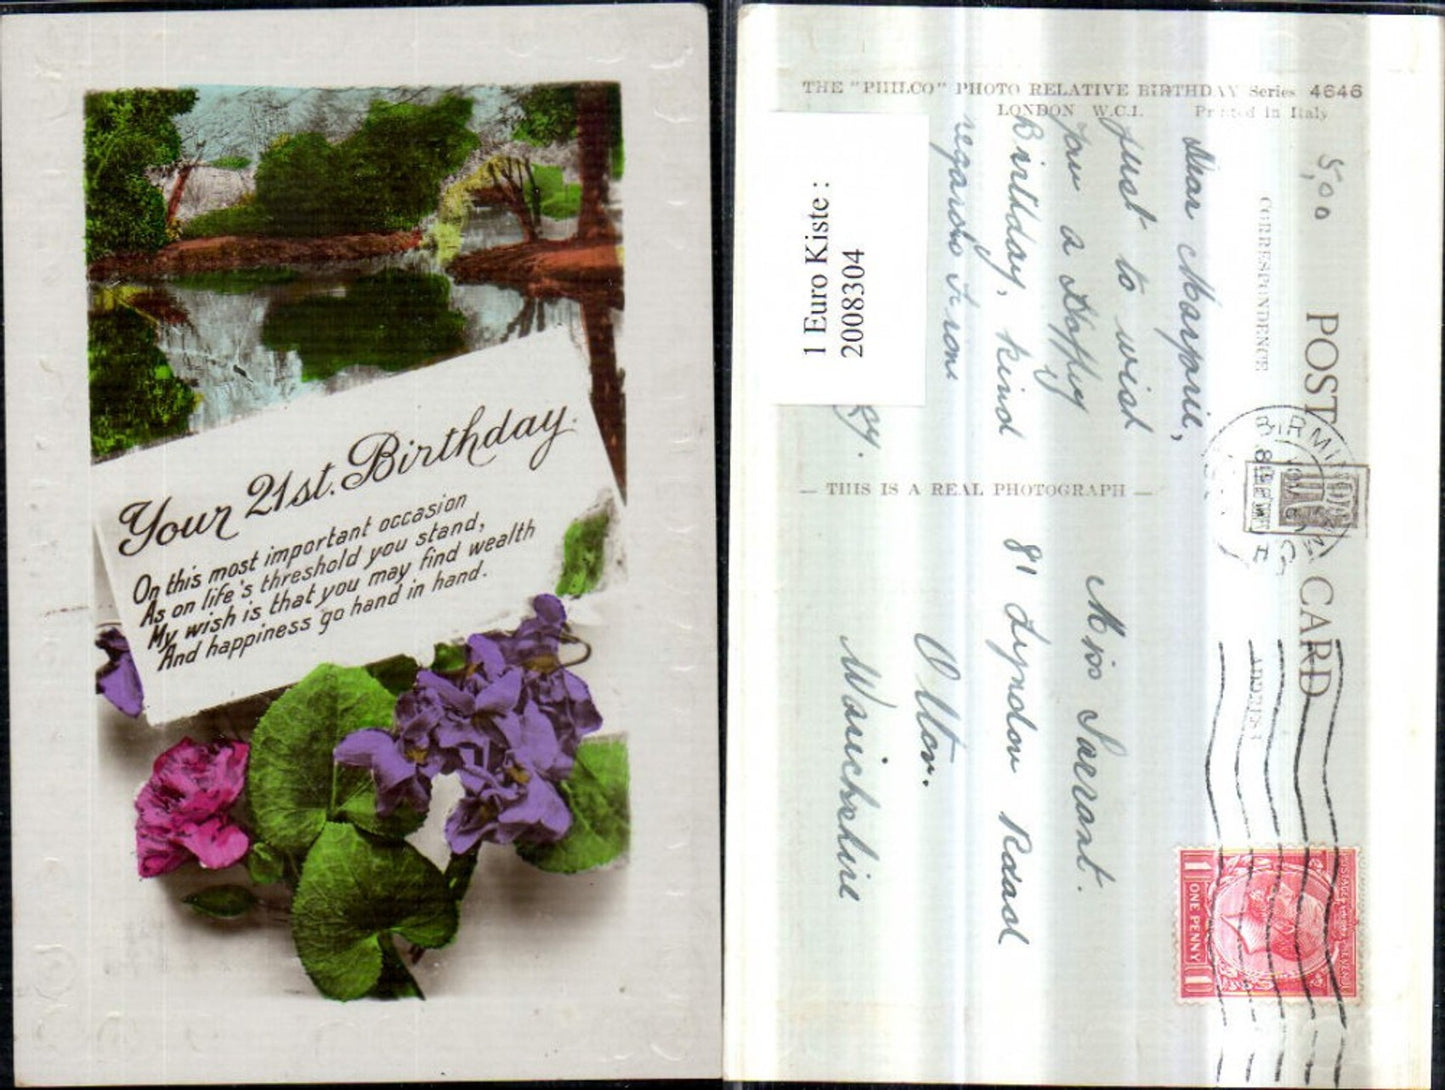 Your 21st. Birthday.
On this most important occasion
As on life's threshold you stand,
My wish is that you may find wealth
And happiness go hand in hand.
THE "PHILCO" PHOTO RELATIVE BIRTHDAY Series 4646
LONDON W.C.1. Printed in Italy
5,00
POST CARD
CORRESPONDENCE
ADDRESS
Dear Marjorie,
Just to wish
you a Happy
Birthday, kind
regards from
1 Euro Kiste :
2008304
— THIS IS A REAL PHOTOGRAPH —
Miss Sarrant.
81 Lyndon Road
Olton.
Warickshire
POSTAGE REVENUE
1 ONE PENNY 1